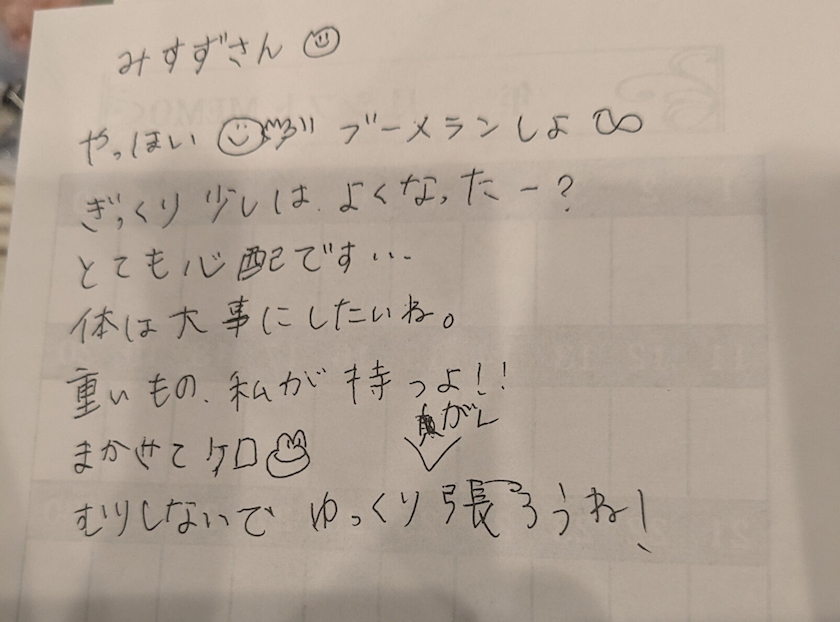 みすずさん
やっほい ブーメランしよ
ぎっくり少しは、よくなったー?
とても心配です...
体は大事にしたいね。
重いもの、私が持つよ!!
まかせてケロ
むりしないで ゆっくりがん張ろうね!